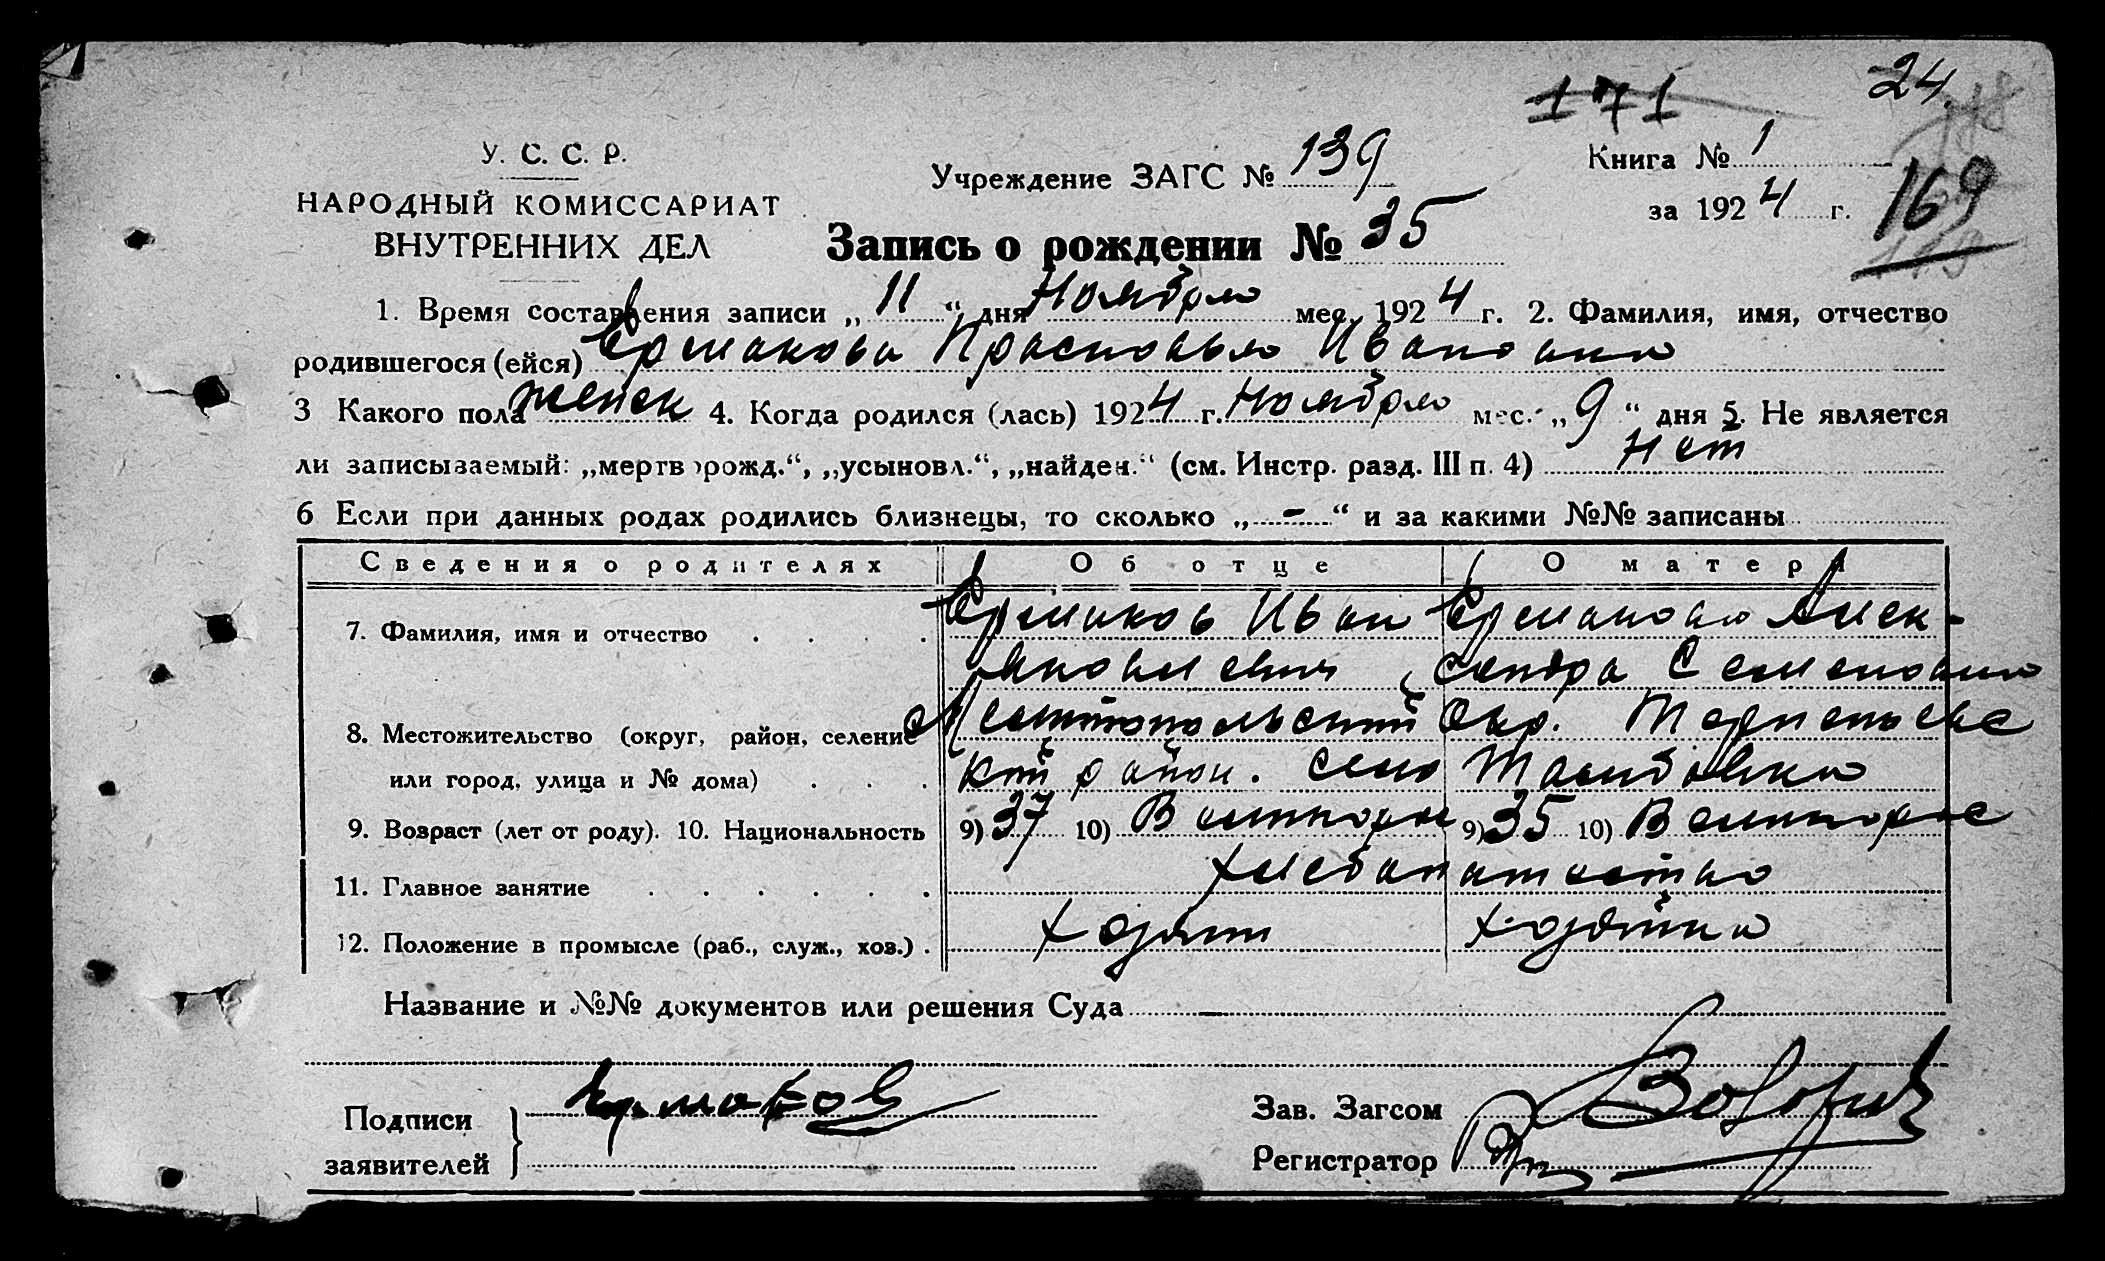 171
24.
У. С. С. Р.
НАРОДНЫЙ КОМИССАРИАТ
ВНУТРЕННИХ ДЕЛ
Учреждение ЗАГС № 139
Книга № 1
за 1924 г.
169
Запись о рождении № 35
1. Время составления записи „ 11 “ дня Ноября мес. 1924 г. 2. Фамилия, имя, отчество
родившегося (ейся) Ермакова Прасковья Ивановна
3 Какого пола женск 4. Когда родился (лась) 1924 г. Ноября мес. „ 9 “ дня 5. Не является
ли записываемый: „мертворожд.“, „усыновл.“, „найден.“ (см. Инстр. разд. III п. 4) Нет
6 Если при данных родах родились близнецы, то сколько „ - “ и за какими №№ записаны
Сведения о родителях Об отце О матери
7. Фамилия, имя и отчество Ермаков Иван Ермакова Алек-
Яковлевич сандра Семеновна
8. Местожительство (округ, район, селение Мелитопольский Окр. Терпеньевс
или город, улица и № дома) кий район. село Тамбовка
9. Возраст (лет от роду). 10. Национальность 9) 37 10) 9) 35 10)
11. Главное занятие хлебопашество
12. Положение в промысле (раб., служ., хоз.) хозяин хозяйка
Название и №№ документов или решения Суда —
Подписи Ермаков Зав. Загсом
заявителей Регистратор